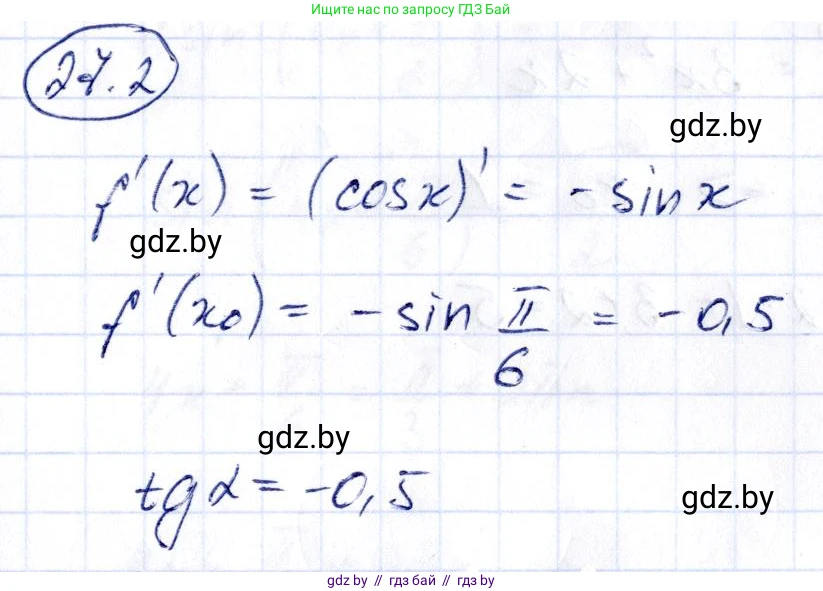 Ищите нас по запросу ГДЗ Бай
27.2
gdz.by
f'(x) = (cosx)' = -sinx
gdz.by
f'(x₀) = -sin π/6 = -0,5
gdz.by
tg α = -0,5
gdz.by
gdz.by // гдз бай // гдз by